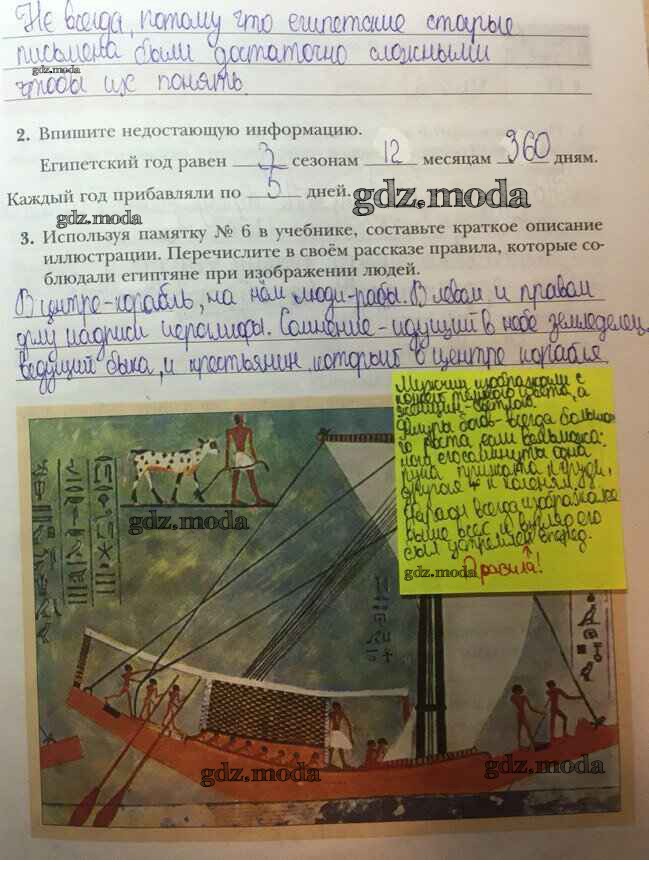 Не всегда, потому что египетские старые
письмена были достаточно сложными
gdz.moda
чтобы их понять.
2. Впишите недостающую информацию.
Египетский год равен 3 сезонам 12 месяцам 360 дням.
Каждый год прибавляли по 5 дней.
gdz.moda
gdz.moda
3. Используя памятку № 6 в учебнике, составьте краткое описание
иллюстрации. Перечислите в своём рассказе правила, которые со-
блюдали египтяне при изображении людей.
В центре-корабль, на нём люди-рабы. В левом и правом
углу надписи иероглифы. Сомнение-идущий в небе земледелец,
ведущий быка, и крестьянин который в центре корабля
Мужчин изображали с
кожей тёмного цвета, а
женщин-светлого.
Фигуры всегда больше-
го роста, если вельможа:
нога его выдвинута одна
рука прижата к груди,
другая к
всегда изображался
выше всех и взгляд его
был устремлён вперёд.
Правила!
gdz.moda
gdz.moda
gdz.moda
gdz.moda